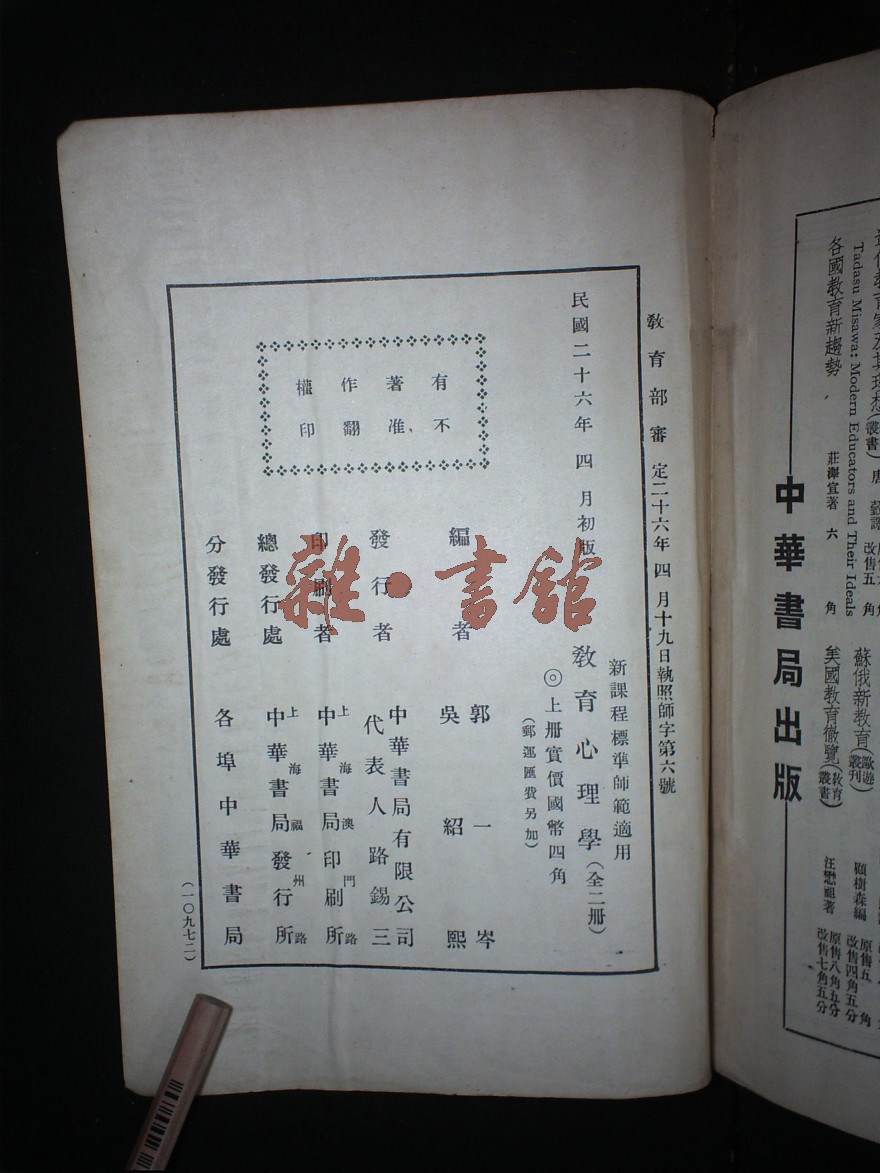 教育部審定二十六年四月十九日執照師字第六號
民國二十六年四月初版
新課程標準師範適用
教育心理學(全二册)
◎上册實價國幣四角
(郵運匯費另加)
有著作權
不准翻印
編者
郭一岑
吳紹熙
發行者
中華書局有限公司
代表人路錫三
印刷者
上海澳門路
中華書局印刷所
總發行處
上海福州路
中華書局發行所
分發行處
各埠中華書局
(一〇九七二)
雜·書館
Tadasu Misawa: Modern Educators and Their Ideals
各國教育新趨勢
莊澤宣著
六角
蘇俄新教育(歐遊叢刊)
顧樹森編
原售五角
改售四角五分
美國教育徹覽(教育叢書)
汪懋祖著
原售八角五分
改售七角五分
中華書局出版